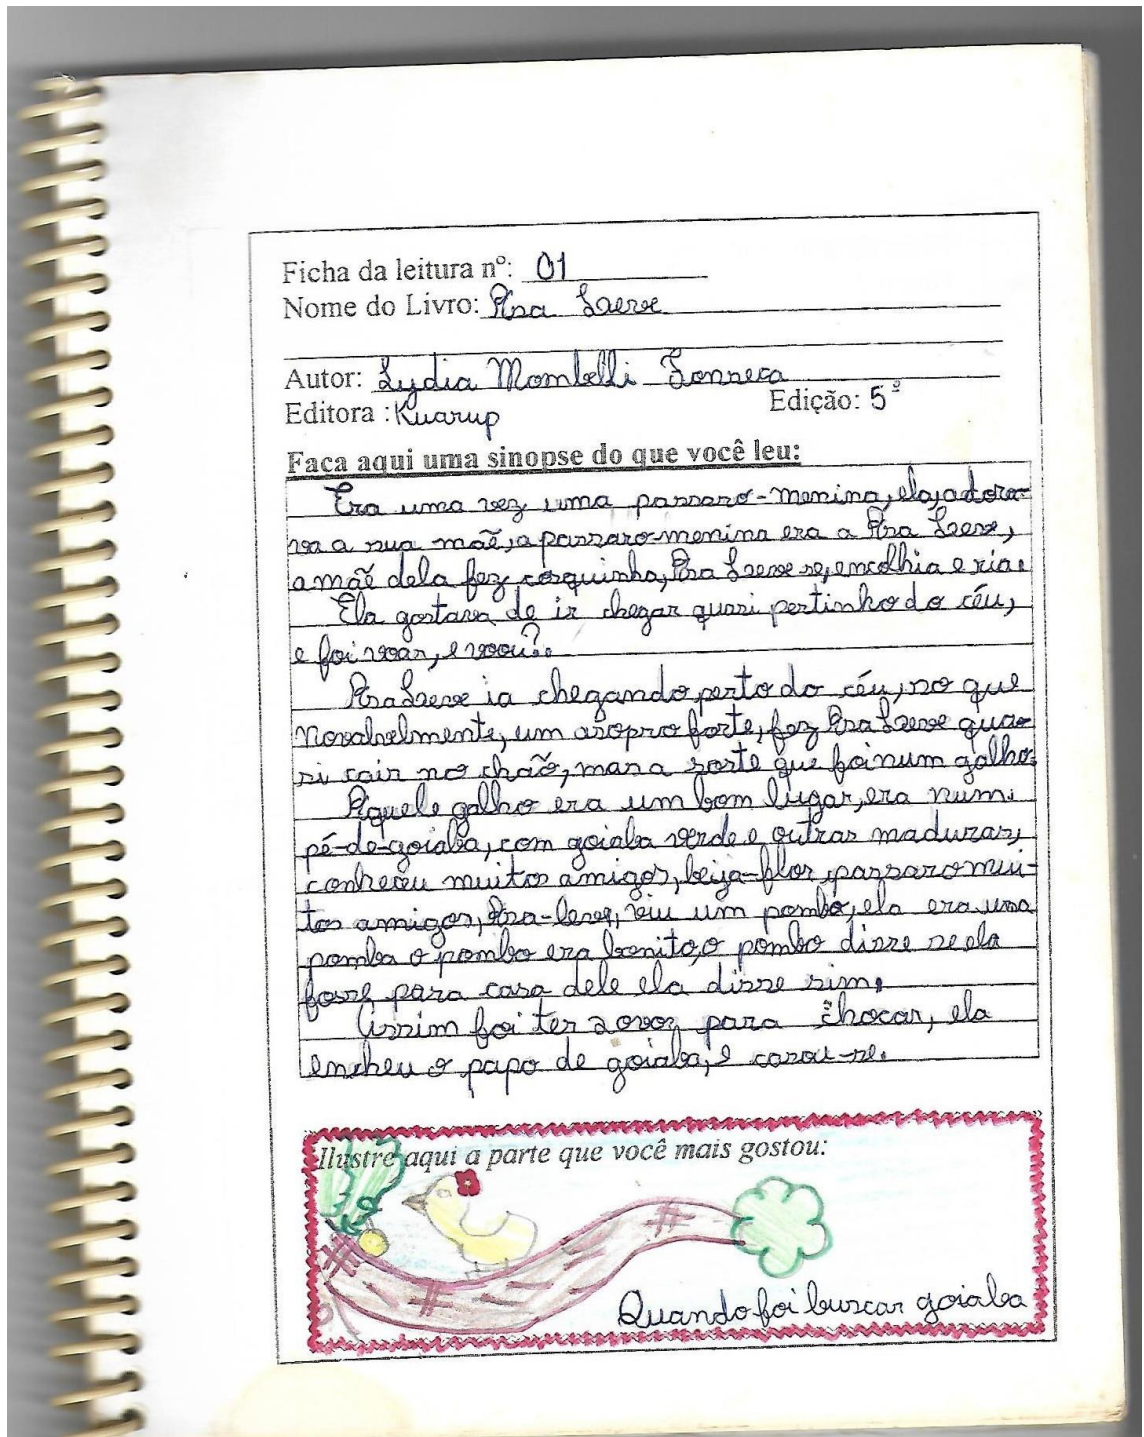 Ficha da leitura nº: 01
Nome do Livro: Asa Leve
Autor: Lydia Mombelli Fonseca
Editora : Kuarup Edição: 5ª
Faca aqui uma sinopse do que você leu:
Era uma vez uma passaro-menina, ela, adora-
va a sua mãe, a passaro-menina era a Asa Leve,
a mãe dela fez cosquinha, Asa Leve se, encolhia e ria.
Ela gostava de ir chegar quasi pertinho do céu,
e foi voar, e voou?..
Asa Leve ia chegando perto do céu, no que
novalvelmente, um asopro forte, fez Asa Leve qua-
si cair no chão, mas a sorte que foi num galho.
Aquele galho era um bom lugar, era num.
pé-de-goiaba, com goiaba verde e outras maduras,
conheceu muitos amigos, beija-flor, passaro mui-
tos amigos, Asa-leve, viu um pombo, ela era uma
pomba o pombo era bonito, o pombo disse se ela
fosse para casa dele ela disse sim.
Assim foi ter 2 ovos para chocar, ela
encheu o papo de goiaba, e casou-se.
Ilustre aqui a parte que você mais gostou:
Quando foi buscar goiaba